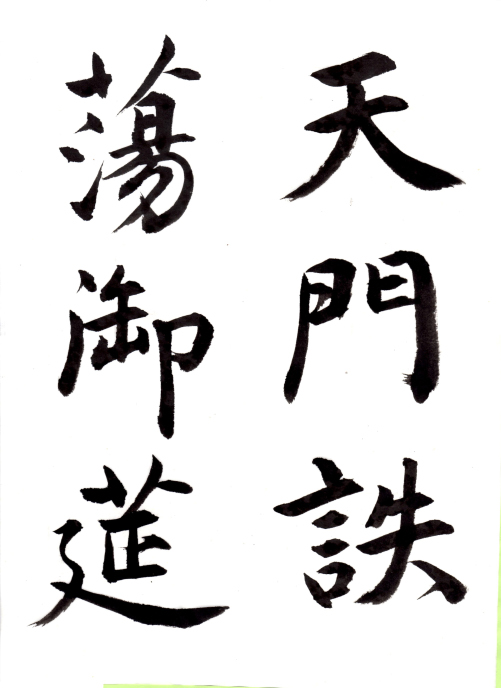 天門詄
蕩御莚